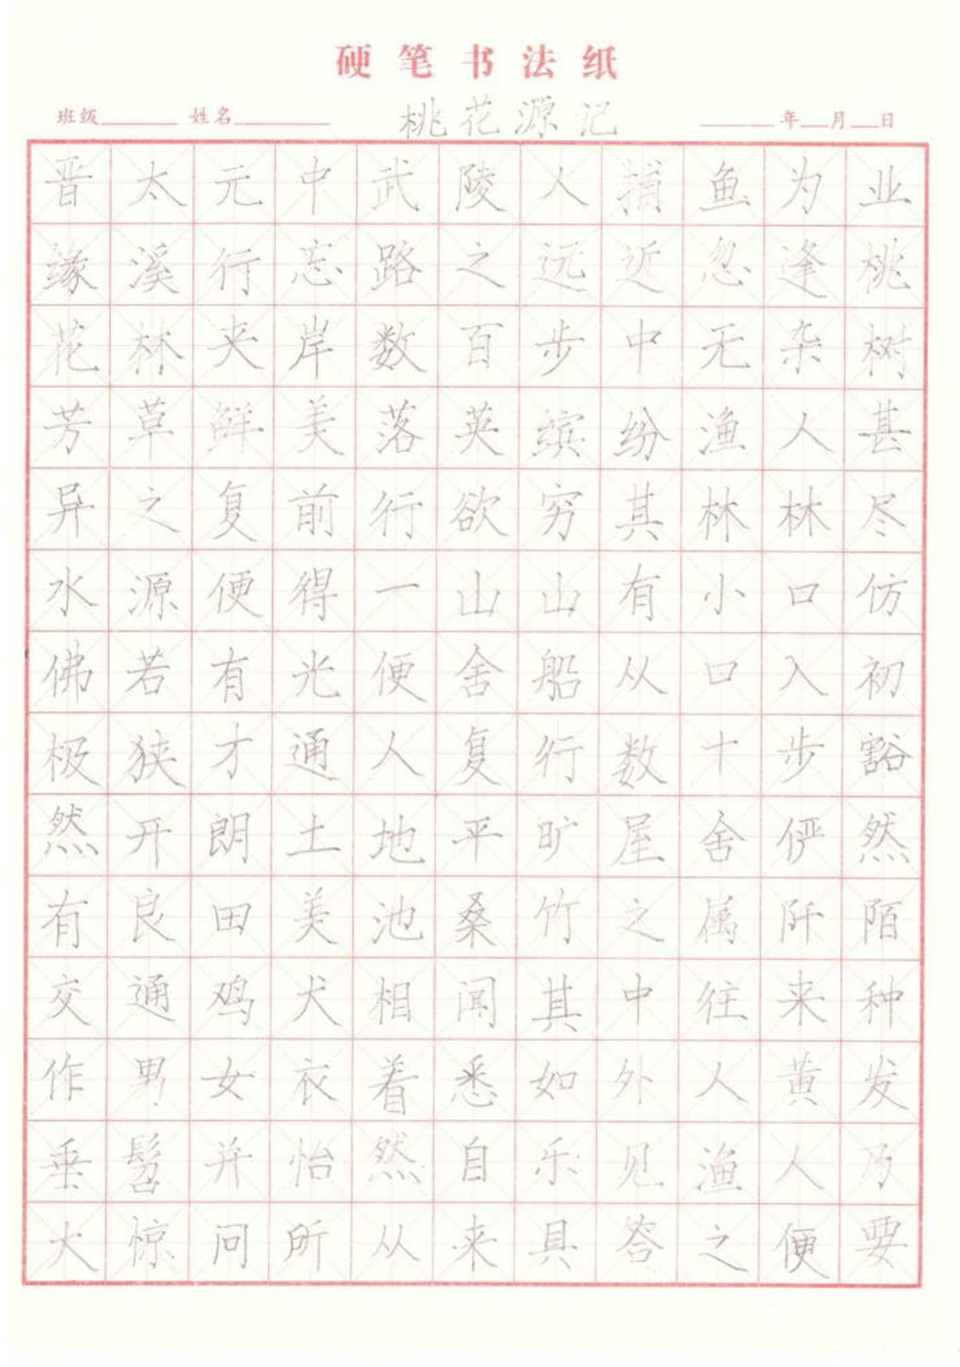 硬笔书法纸
班级 姓名 桃花源记 年 月 日
晋太元中武陵人捕鱼为业
缘溪行忘路之远近忽逢桃
花林夹岸数百步中无杂树
芳草鲜美落英缤纷渔人甚
异之复前行欲穷其林林尽
水源便得一山山有小口仿
佛若有光便舍船从口入初
极狭才通人复行数十步豁
然开朗土地平旷屋舍俨然
有良田美池桑竹之属阡陌
交通鸡犬相闻其中往来种
作男女衣着悉如外人黄发
垂髫并怡然自乐见渔人乃
大惊问所从来具答之便要